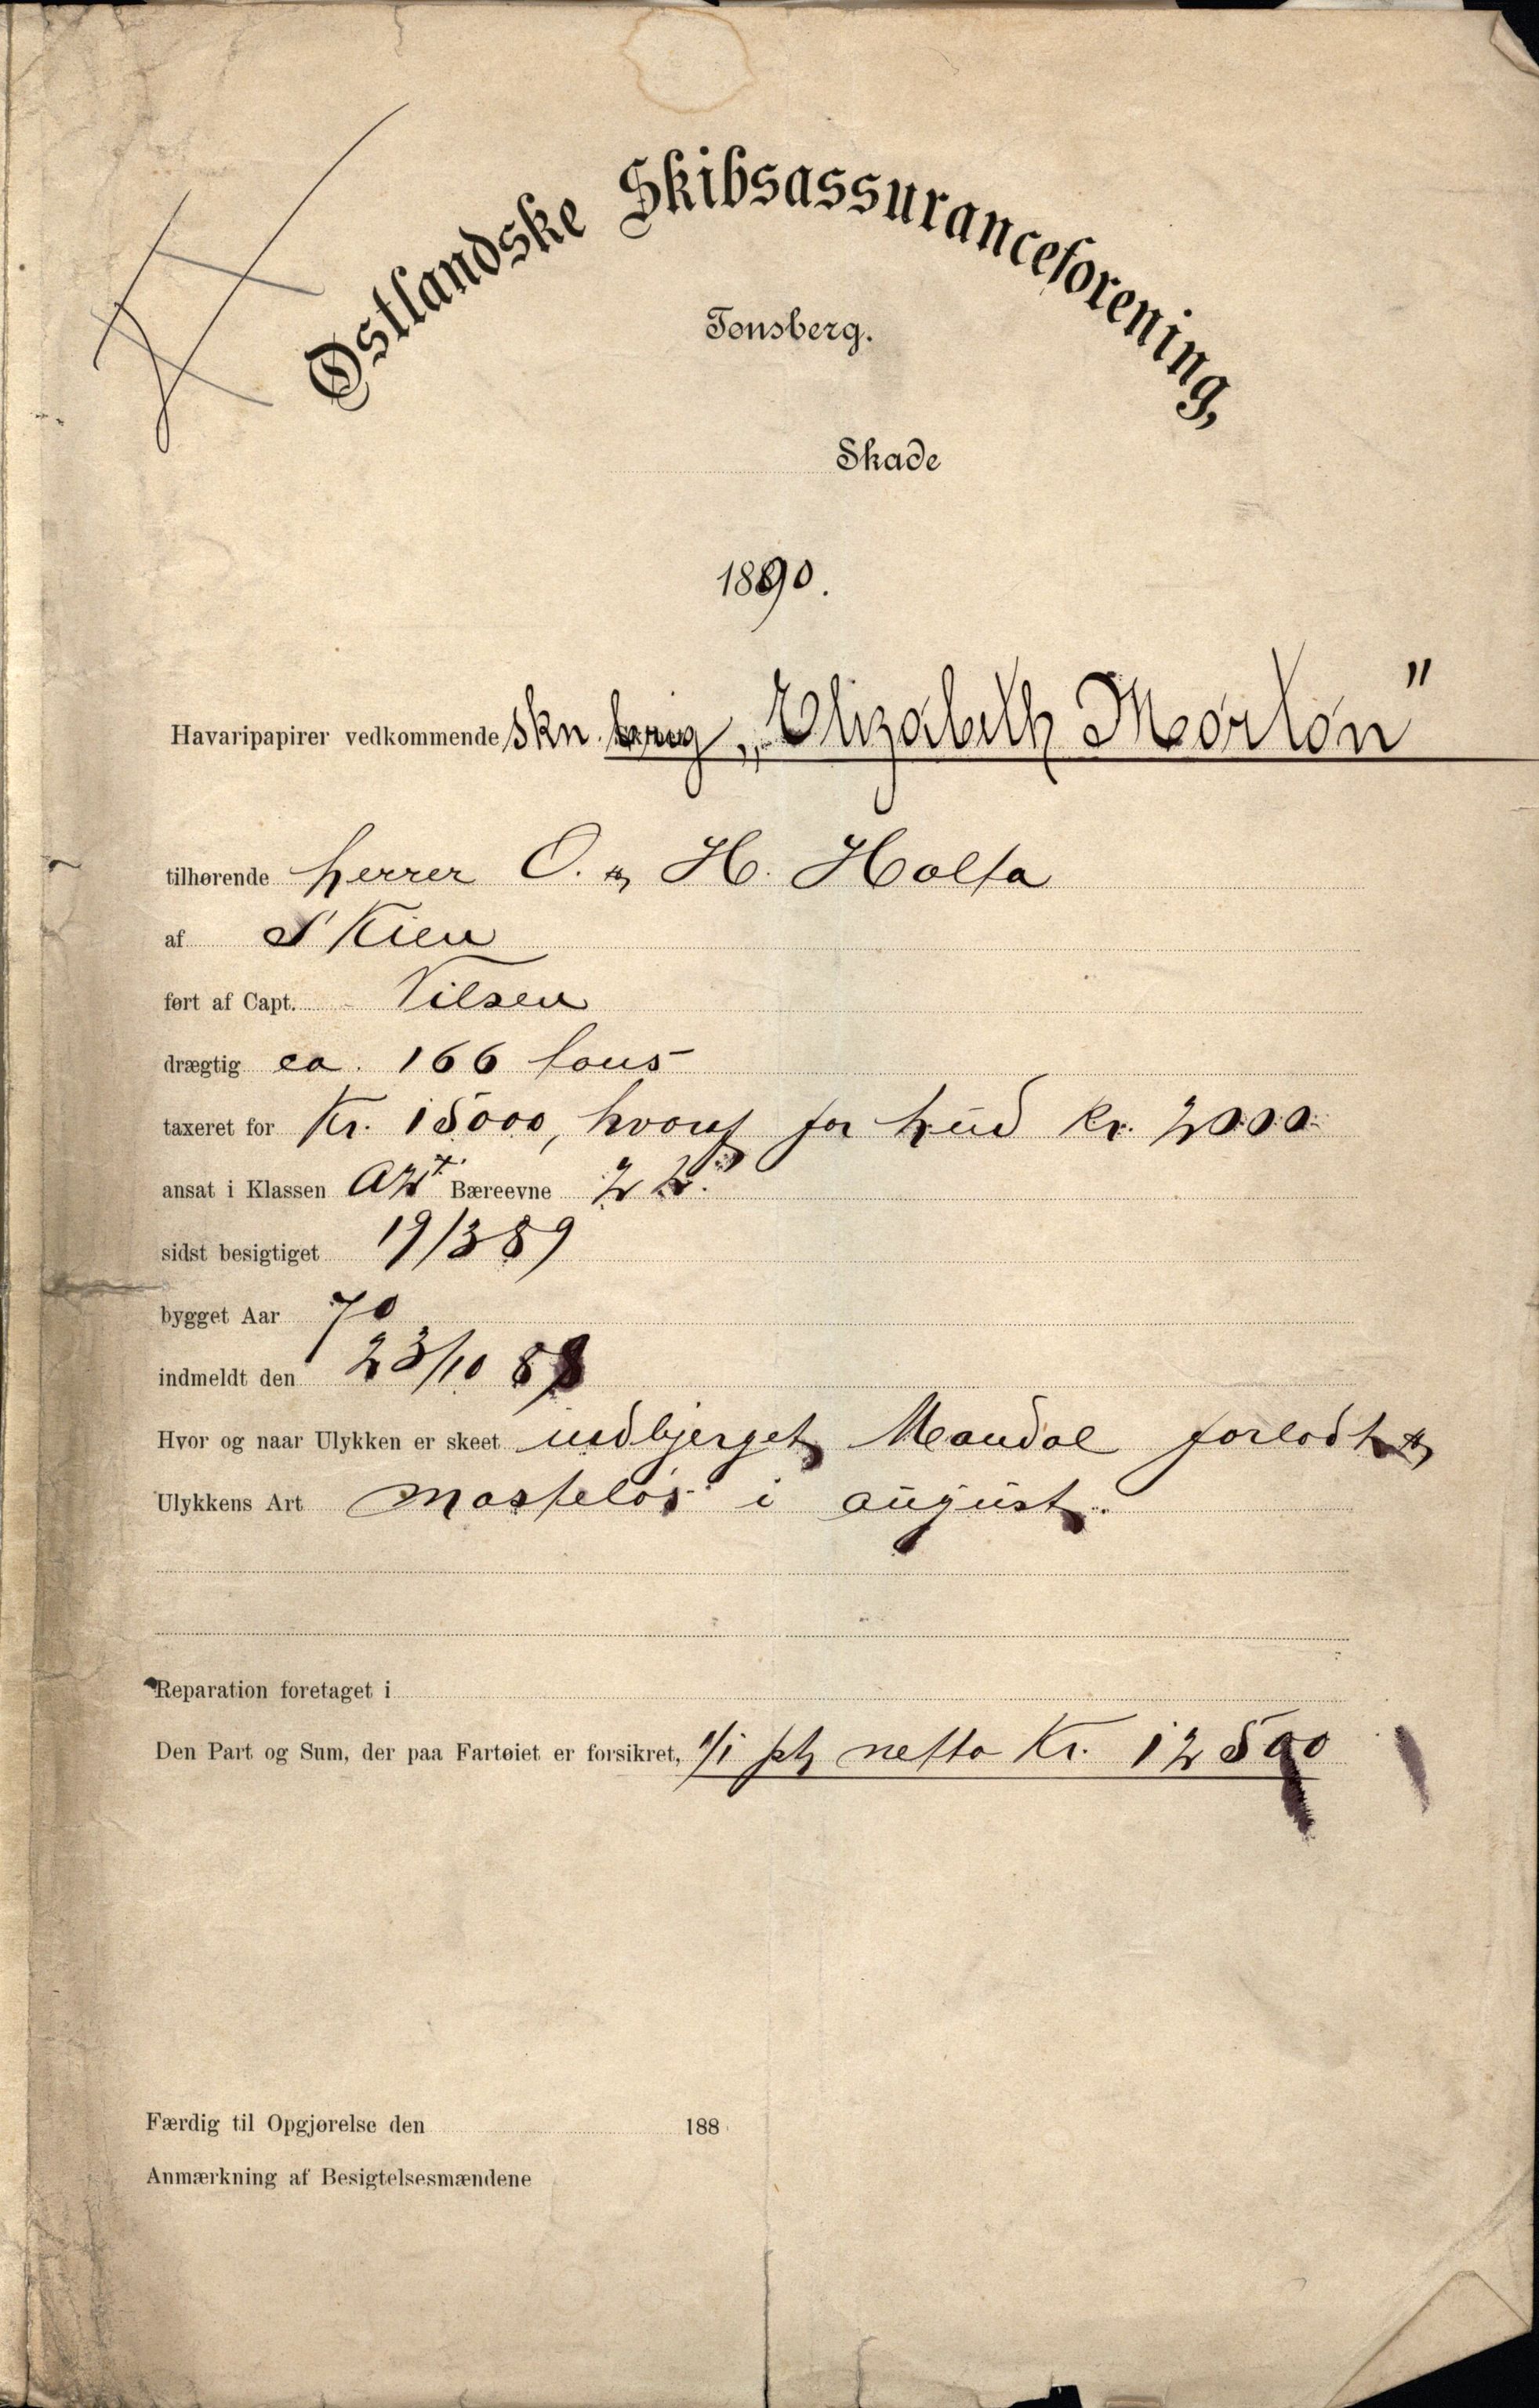 Østlandske Skibsassuranceforening,
Tønsberg.
Skade
1890.
Havaripapirer vedkommende skn. brig „Elizabeth Morton"
tilhørende herrer O. & H. Holta
af Skien
ført af Capt. Nilsen
drægtig ca. 166 tons
taxeret for Kr. 15000, hvoraf for hud kr. 2000
ansat i Klassen A2 Bæreevne 2
sidst besigtiget 19/3 89
bygget Aar 70
indmeldt den 23/10 88
Hvor og naar Ulykken er skeet indbjerget Mandal forladt &
Ulykkens Art masteløs i august.
Reparation foretaget i
Den Part og Sum, der paa Fartøiet er forsikret, 1/1 pt netto Kr. 12500
Færdig til Opgjørelse den 188
Anmærkning af Besigtelsesmændene